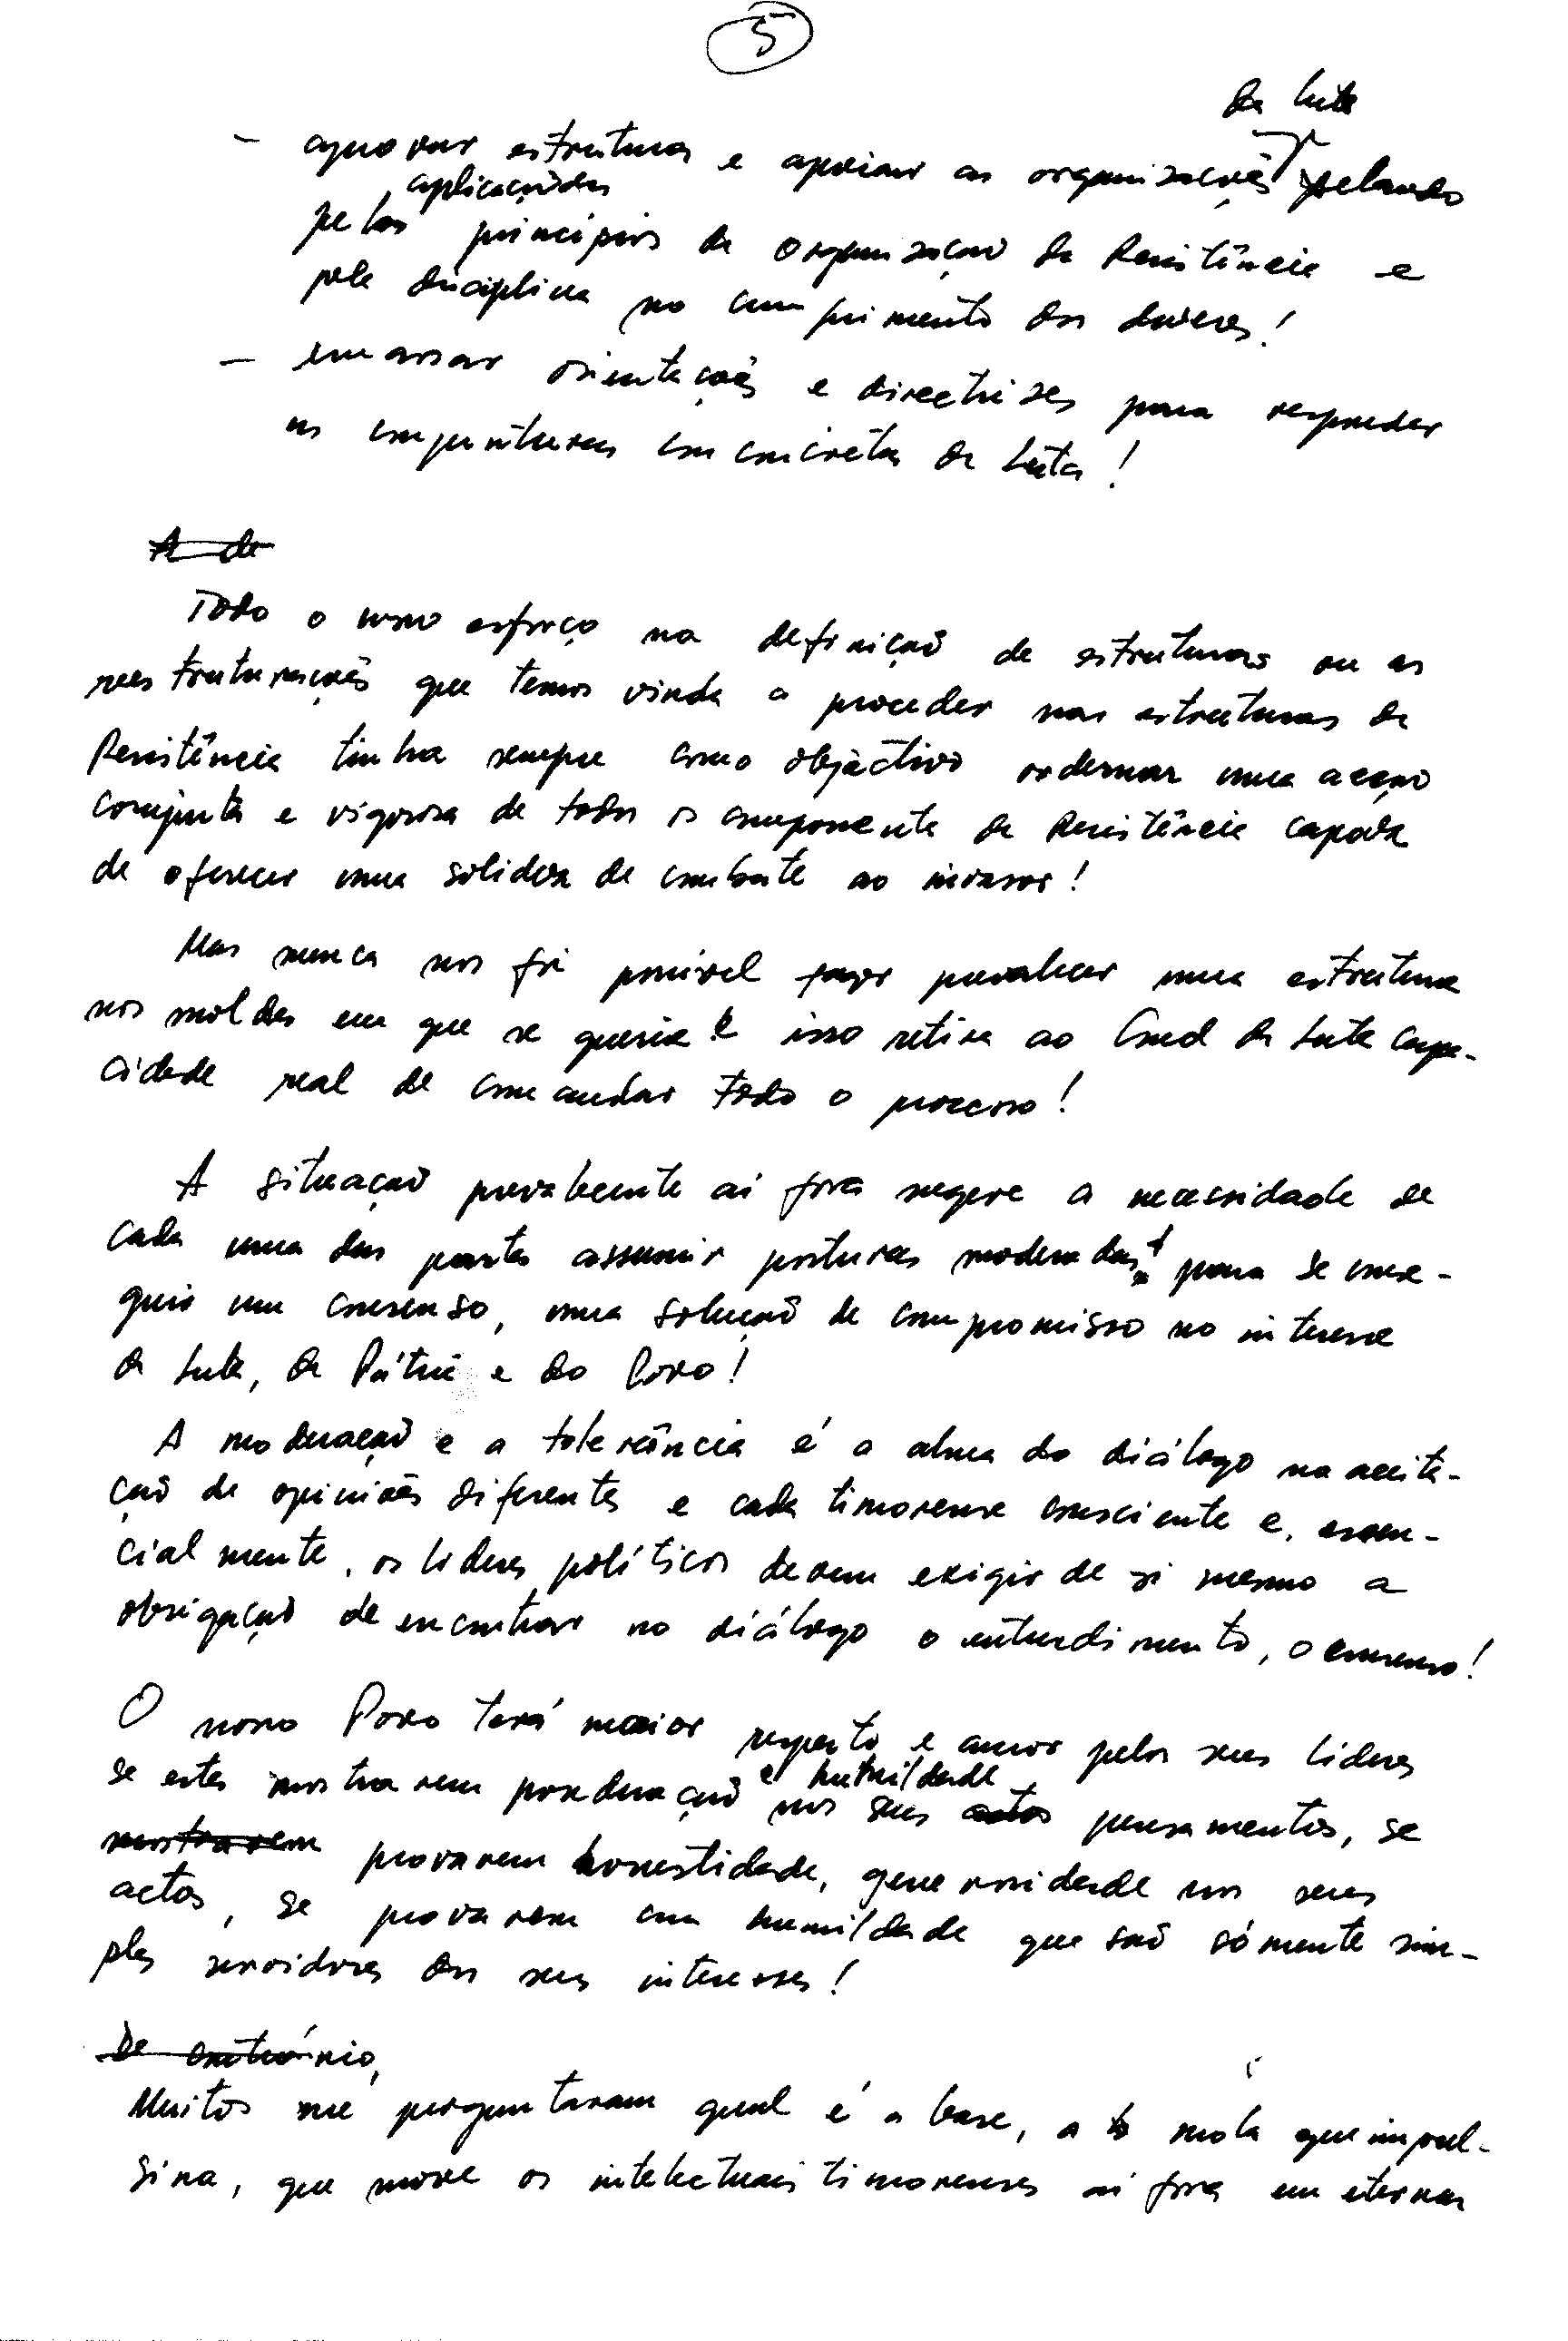 5
da luta
- aprovar estruturas e apoiar as organizações zelando
aplicação dos
pelos princípios de organização da Resistência e
pela disciplina no cumprimento dos deveres!
- emanar orientações e directrizes para responder
as conjunturas concretas da luta!
A de
Todo o nosso esforço na definição de estruturas ou as
reestruturações que temos vindo a proceder nas estruturas da
Resistência tinha sempre como objectivo ordenar uma acção
conjunta e vigorosa de todos os componente da Resistência capaz
de oferecer uma solidez de combate ao invasor!
Mas nunca nos foi possível fazer prevalecer uma estrutura
nos moldes em que se queria e isso retira ao Cmd da Luta capa-
cidade real de comandar todo o processo!
A situação prevalecente aí fora sugere a necessidade de
cada uma das partes assumir posturas moderadas para se conse-
guir um consenso, uma solução de compromisso no interesse
da Luta, da Pátria e do Povo!
A moderação e a tolerância é a alma do diálogo na aceita-
ção de opiniões diferentes e cada timorense consciente e, essen-
cialmente, os líderes políticos devem exigir de si mesmo a
obrigação de encontrar no diálogo o entendimento, o consenso!
O nosso Povo terá maior respeito e amor pelos seus líderes
e humildade
se estes mostrarem ponderação nos seus actos pensamentos, se
mostrarem provarem honestidade, generosidade nos seus
actos, se provarem com humildade que são sómente sim-
ples servidores dos seus interesses!
De contrário,
Muitos me perguntaram qual é a base, a mola que impul-
siona, que move os intelectuais timorenses aí fora em eternas